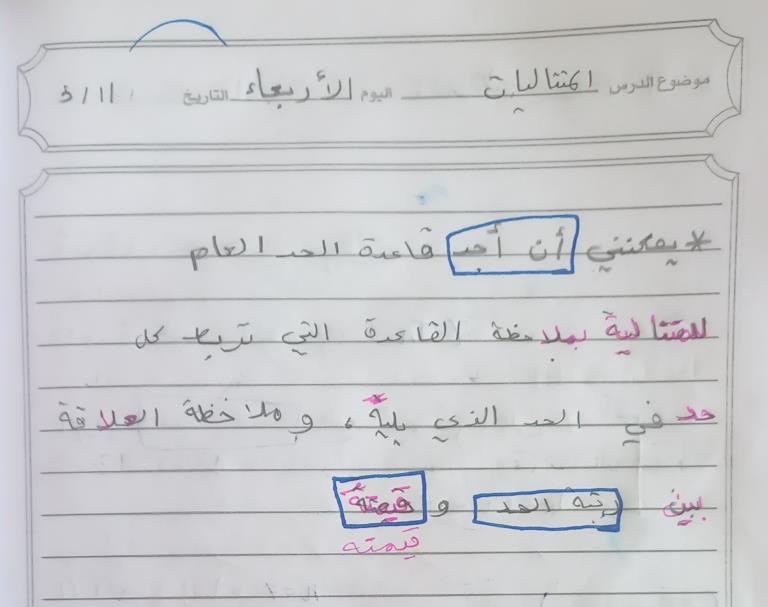 موضوع الدرس المتتاليات اليوم الأربعاء التاريخ 11 / 5
* يمكنني أن أجد قاعدة الحد العام
للمتتالية بملاحظة القاعدة التي تربط كل
حد في الحد الذي يليه ، و ملاحظة العلاقة
بين رتبة الحد و قيمته
قيمته